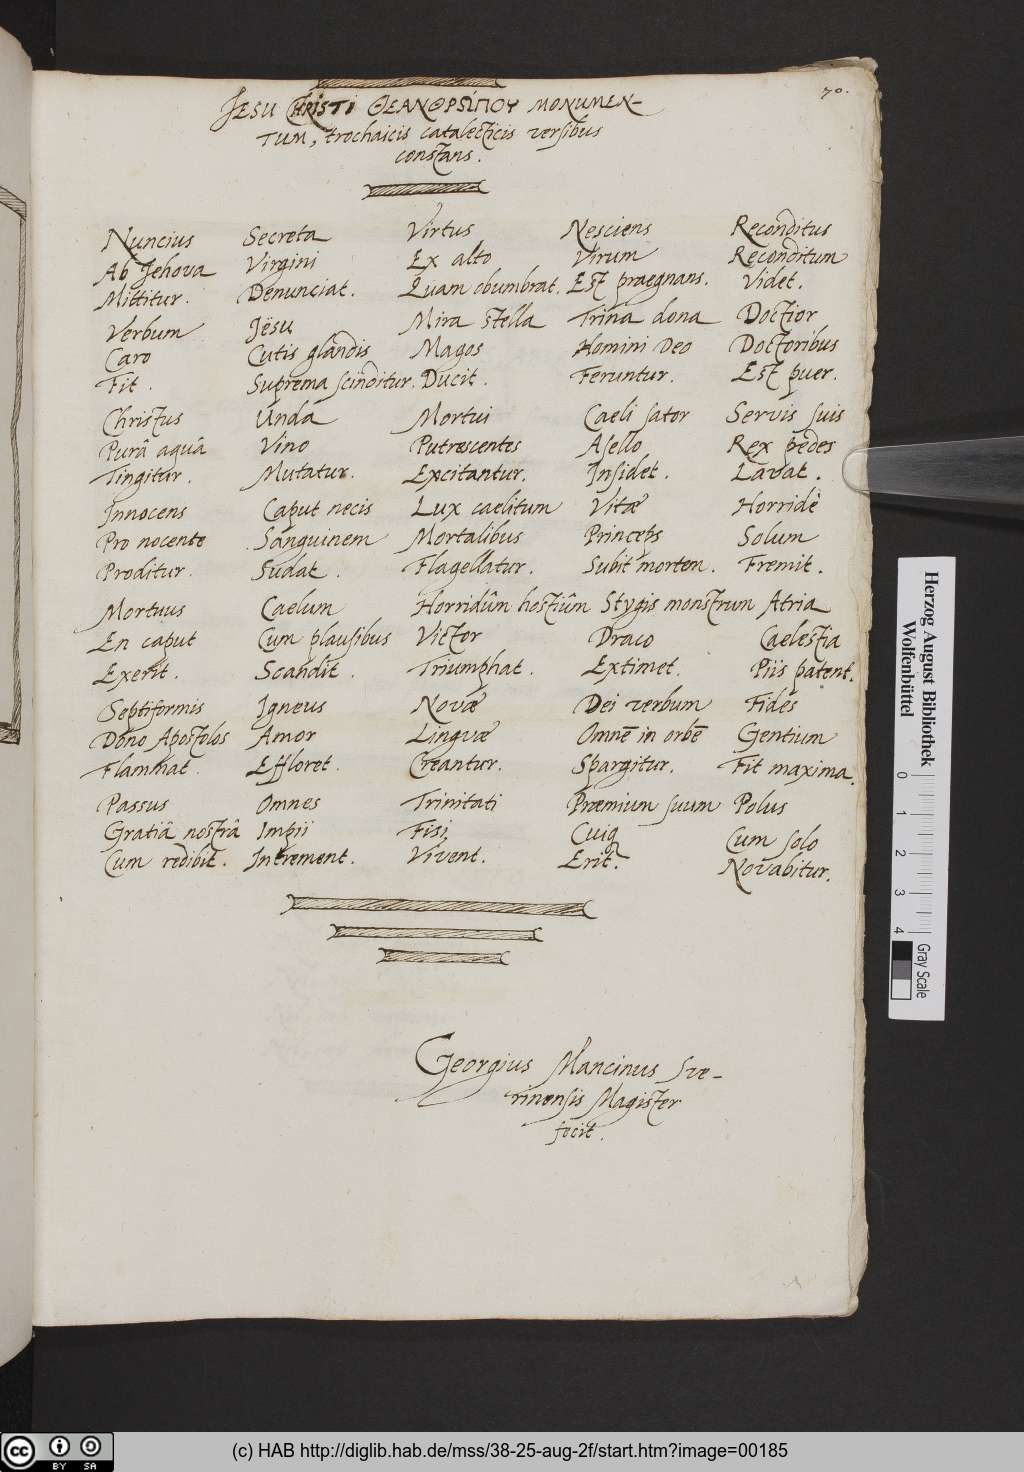 70.
JESU CHRISTI ΘΕΑΝΘΡΩΠΟΥ MONUMEN-
TUM, trochaicis catalecticis versibus
constans.
Nuncius Secreta Virtus Nesciens Reconditus
Ab Jehova Virgini Ex alto Virum Reconditum
Mittitur. Denunciat. Quam obumbrat. Est praegnans. Videt.
Verbum Jësu Mira stella Trina dona Doctior
Caro Cutis glandis Magos Homini Deo Doctoribus
Fit. Suprema scinditur. Ducit. Feruntur. Est puer.
Christus Unda Mortui Caeli sator Servis suis
Purâ aquâ Vino Putrescentes Asello Rex pedes
Tingitur. Mutatur. Excitantur. Insidet. Lavat.
Innocens Caput necis Lux caelitum Vitæ Horridè
Pro nocente Sanguinem Mortalibus Princeps Solum
Proditur. Sudat. Flagellatur. Subit mortem. Fremit.
Mortuus Caelum Horridûm hostiûm Stygis monstrum Atria
En caput Cum plausibus Victor Draco Caelestia
Exerit. Scandit. Triumphat. Extimet. Piis patent.
Septiformis Igneus Novæ Dei verbum Fides
Dono Apostolos Amor Linguæ Omnē in orbē Gentium
Flammat. Effloret. Creantur. Spargitur. Fit maxima.
Passus Omnes Trinitati Præmium suum Polus
Gratiâ nostrâ Impii Fisi Cuiq Cum solo
Cum redibit. Intrement. Vivent. Erit. Novabitur.
Georgius Mancinus Sve-
rinensis Magister
fecit.
Herzog August Bibliothek
Wolfenbüttel
0 1 2 3 4
Gray Scale
cc BY SA
(c) HAB http://diglib.hab.de/mss/38-25-aug-2f/start.htm?image=00185